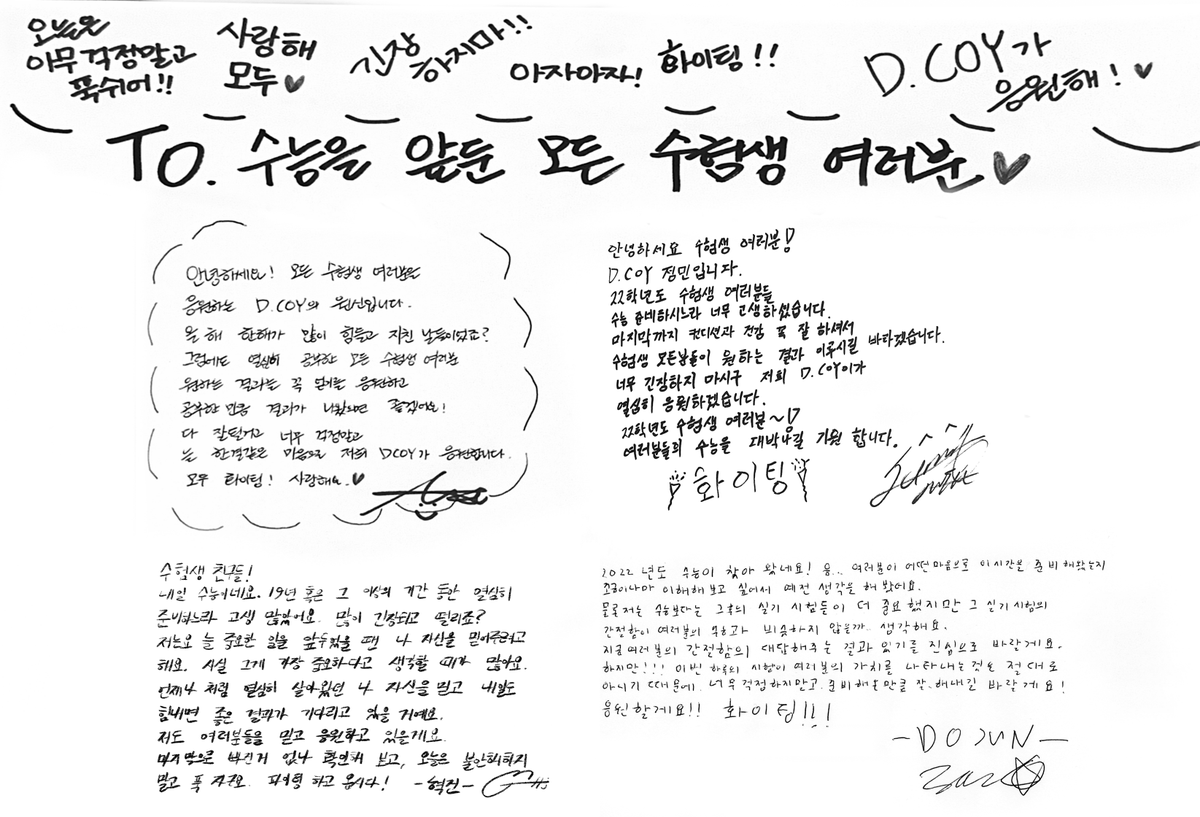 오늘은
아무 걱정말고
푹쉬어!!
사랑해
모두♥
긴장
하지마!!
아자아자!
화이팅!!
D.COY가
응원해!♥
TO. 수능을 앞둔 모든 수험생 여러분♥
안녕하세요! 모든 수험생 여러분을
응원하는 D.COY의 원신입니다.
올 해 한해가 많이 힘들고 지친 날들이었죠?
그럼에도 열심히 공부한 모든 수험생 여러분
원하는 결과는 꼭 얻기를 응원하고
공부한 만큼 결과가 나왔으면 좋겠어요!
다 잘될거고 너무 걱정말고
늘 한결같은 마음으로 저희 DCOY가 응원합니다.
모두 화이팅! 사랑해요.♥
안녕하세요 수험생 여러분!
D.COY 정민입니다.
22학년도 수험생 여러분들
수능 준비하시느라 너무 고생하셨습니다.
마지막까지 컨디션과 건강 꼭 잘 하셔서
수험생 모든분들이 원하는 결과 이루시길 바라겠습니다.
너무 긴장하지 마시구 저희 D.COY이가
열심히 응원하겠습니다.
22학년도 수험생 여러분~!
여러분들의 수능을 대박나길 기원 합니다.
화이팅
수험생 친구들!
내일 수능이네요. 19년 혹은 그 이상의 기간 동안 열심히
준비하느라 고생 많았어요. 많이 긴장되고 떨리죠?
저는요 늘 중요한 일을 앞두었을 땐 나 자신을 믿어주려고
해요. 사실 그게 가장 중요하다고 생각할 때가 많아요.
언제나 처럼 열심히 살아왔던 나 자신을 믿고 내일도
힘내면 좋은 결과가 기다리고 있을 거예요.
저도 여러분들을 믿고 응원하고 있을게요.
마지막으로 빠진거 없나 확인해 보고, 오늘은 불안해하지
말고 푹 자구요. 파이팅 하고 옵시다! -혁진-
2022 년도 수능이 찾아 왔네요! 음.. 여러분이 어떤마음으로 이시간을 준비해왔는지
조금이나마 이해해보고 싶어서 예전 생각을 해 봤어요.
물론 저는 수능보다는 그 후의 실기 시험들이 더 중요했지만 그 실기시험의
간절함이 여러분의 수능과 비슷하지 않을까 생각해요.
지금여러분의 간절함의 대답해주는 결과 있기를 진심으로 바랄게요.
하지만!!! 이번 하루의 시험이 여러분의 가치를 나타내는것은 절대로
아니기 때문에. 너무걱정하지만고. 준비해온만큼 잘.해내길 바랄게요!
응원할게요!! 화이팅!!!
-DO JUN-